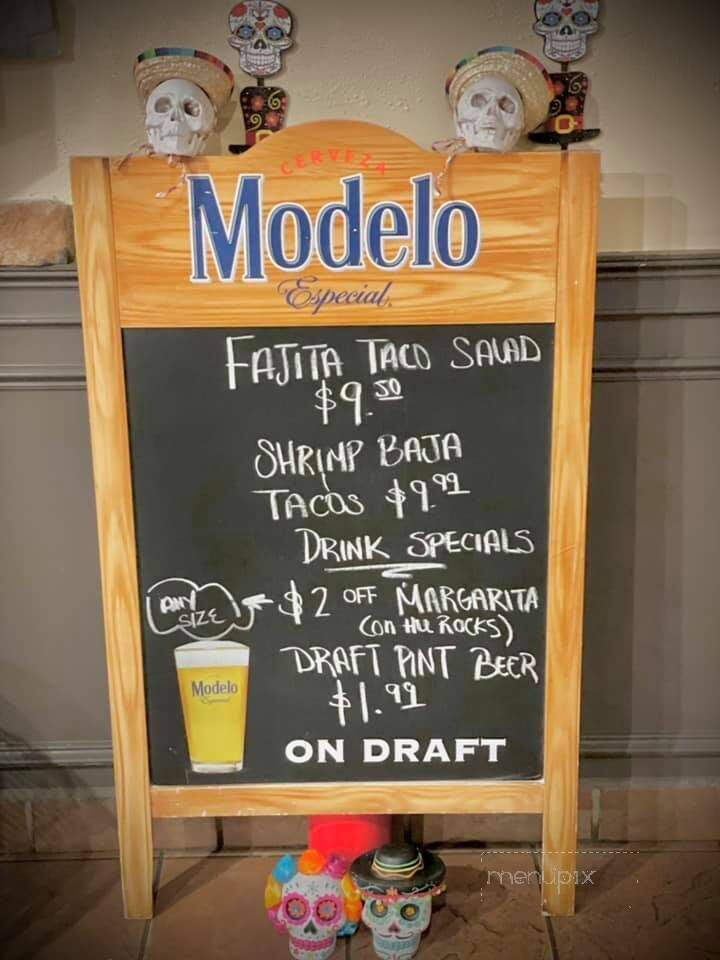 CERVEZA
Modelo
Especial
FAJITA TACO SALAD
$9.50
SHRIMP BAJA
TACOS $9.99
DRINK SPECIALS
ANY
SIZE
$2 OFF MARGARITA
(on the ROCKS)
DRAFT PINT BEER
$1.99
Modelo
Especial
ON DRAFT
menupix